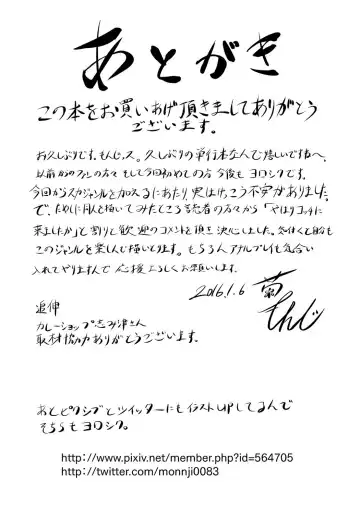 あとがき
この本をお買いあげ頂きましてありがとう
ございます。
お久しぶりです。もんじっス。久しぶりの単行本なんで嬉しいですね〜、
以前からのファンの方々もして今回初めての方今後もヨロシクです。
今回からスカジャンルを加えるにあたり実はけっこう不安がありました
で、ためしに同人を描いてみたところ読者の方々から「やはりコッチに
来ましたか」と割りと歓迎のコメントを頂き決心しました。自分も
このジャンルを楽しんで描いとります。もちろんアナルプレイも気合い
入れてやりますんで応援よろしくお願いします。
2016.1.6
もんじ
追伸
カレーショップ志み津さん
取材協力ありがとうございます。
あとピクシブとツイッターにもイラストUPしてるんで
そちらもヨロシク。
http://www.pixiv.net/member.php?id=564705
http://twitter.com/monnji0083